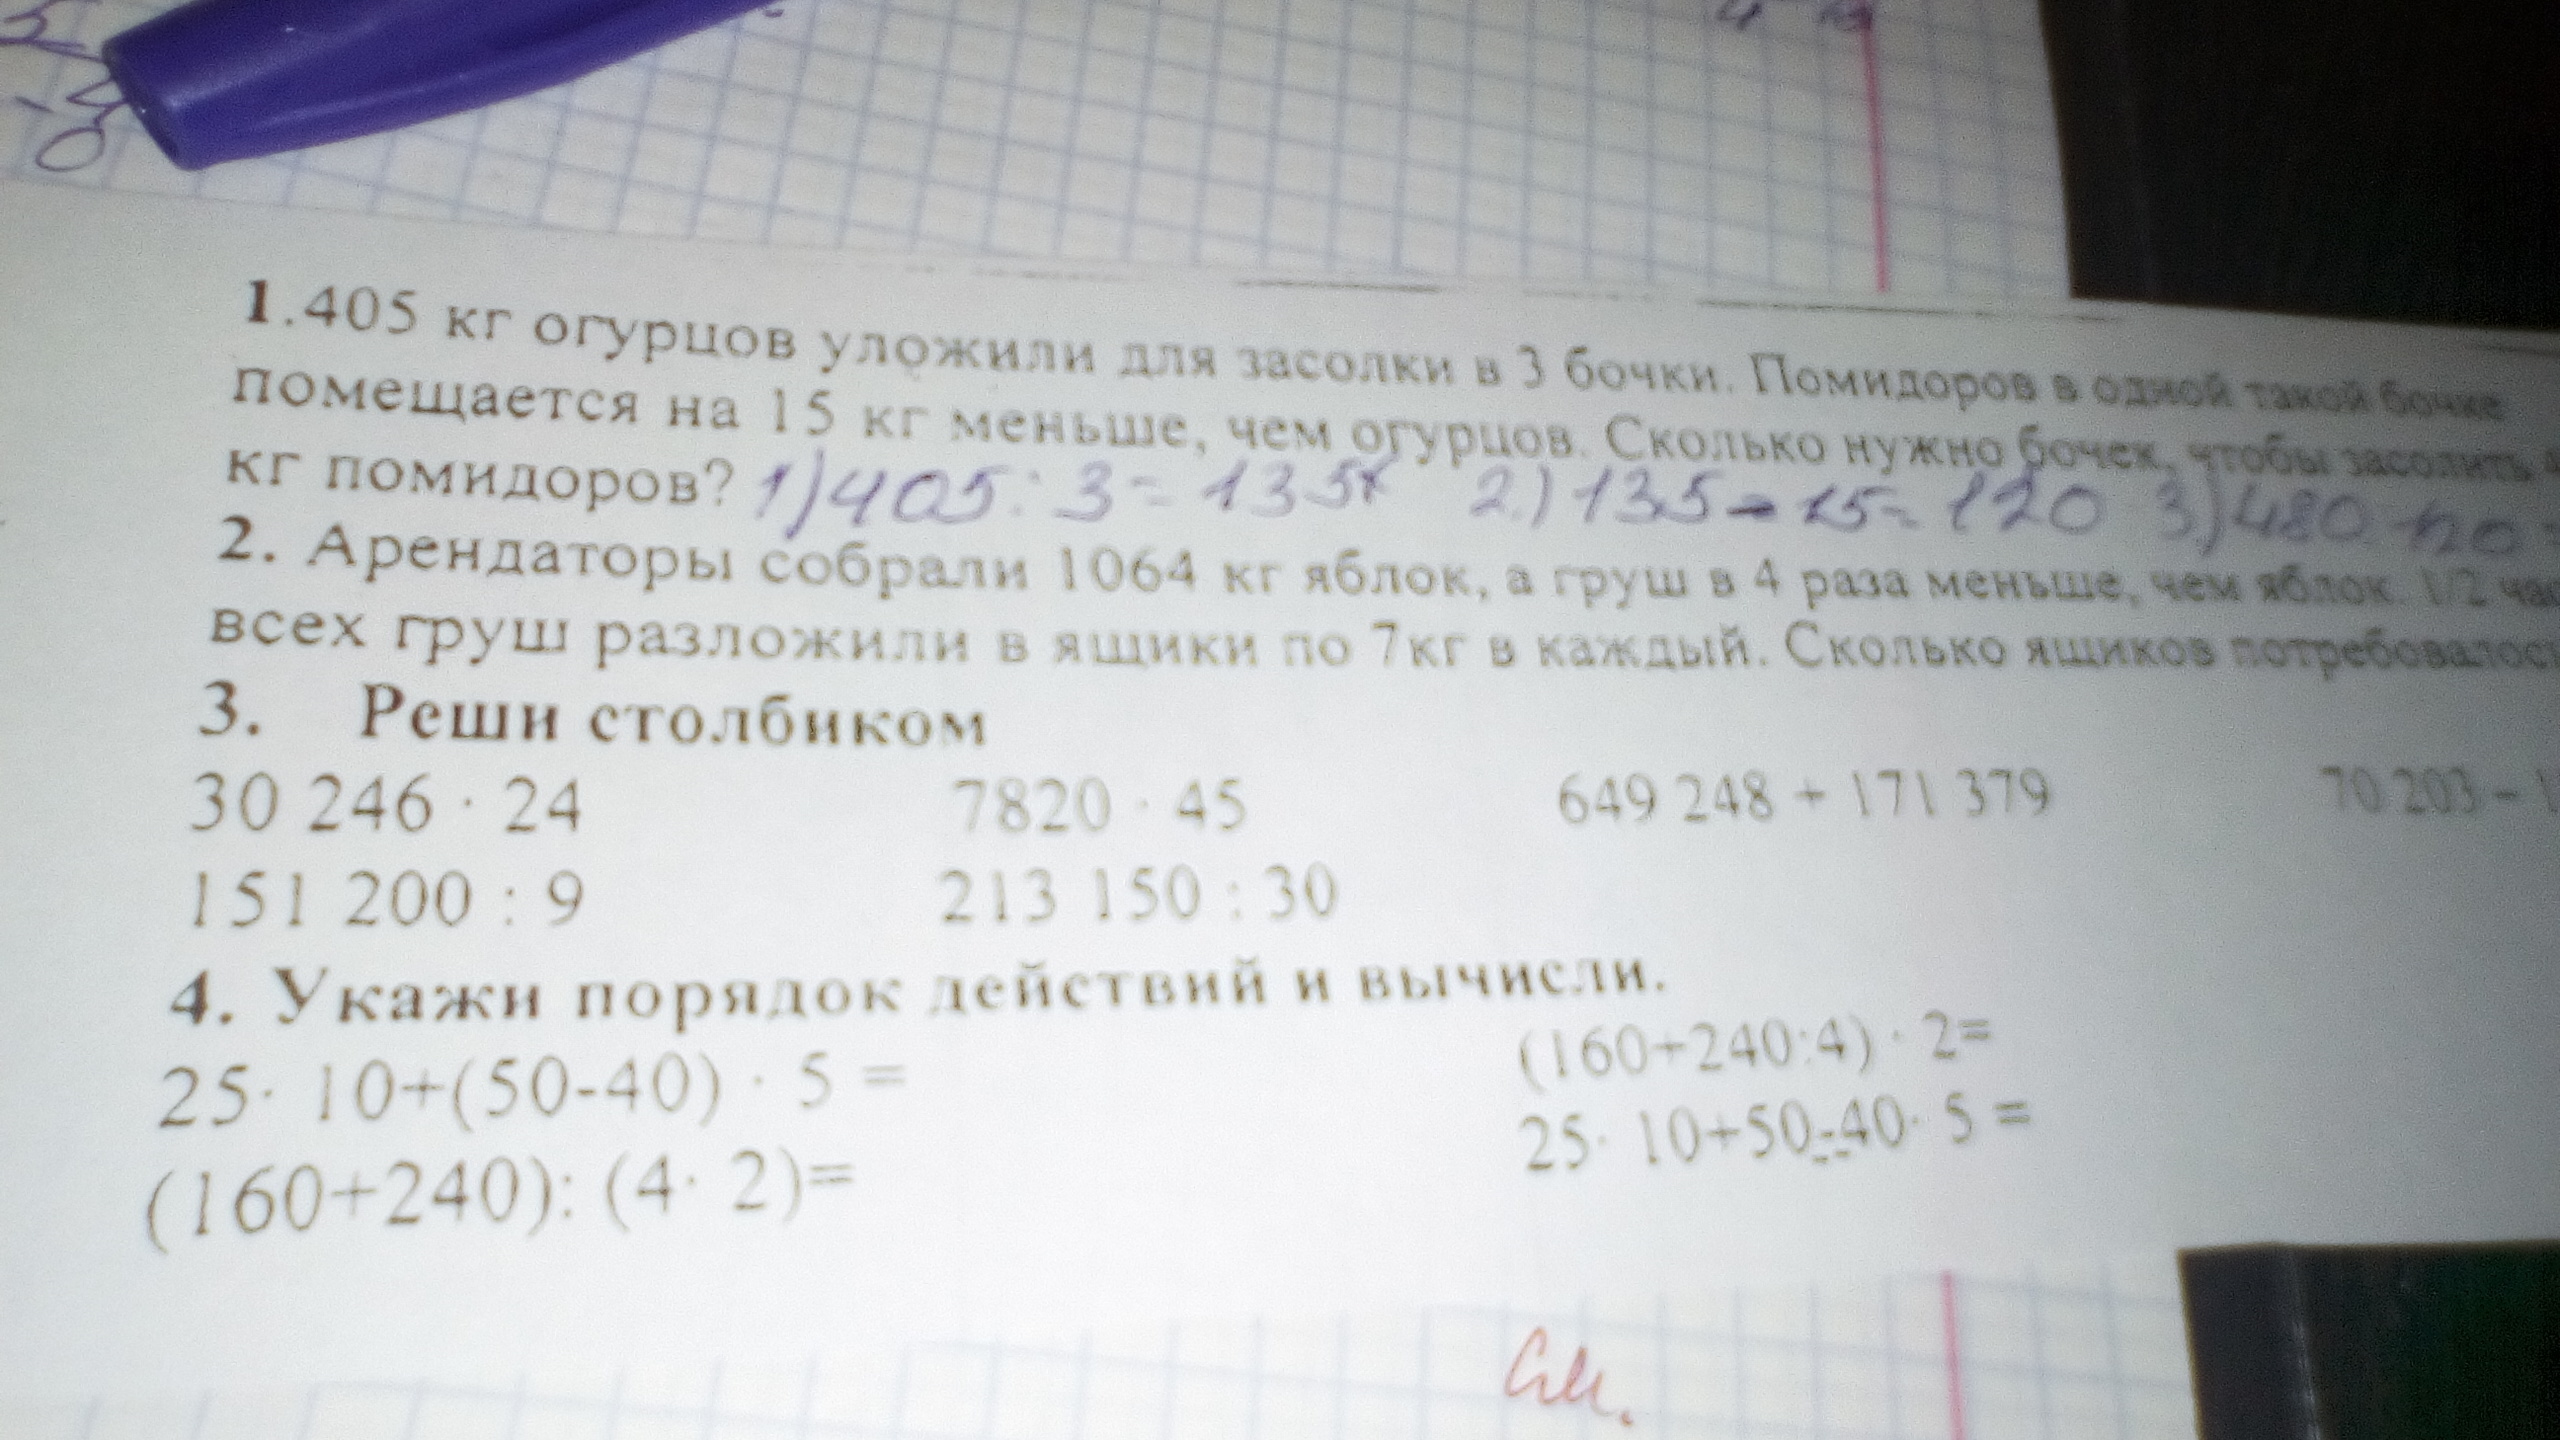 1.405 кг огурцов уложили для засолки в 3 бочки. Помидоров в одной такой бочке
помещается на 15 кг меньше, чем огурцов. Сколько нужно бочек, чтобы засолить
кг помидоров? 1) 405 : 3 = 135 2.) 135 - 15 = 120 3.) 480
2. Арендаторы собрали 1064 кг яблок, а груш в 4 раза меньше, чем яблок. 1/2
всех груш разложили в ящики по 7кг в каждый. Сколько ящиков
3. Реши столбиком
30 246 · 24 7820 · 45 649 248 + 171 379 70 203 -
151 200 : 9 213 150 : 30
4. Укажи порядок действий и вычисли.
25· 10+(50-40) · 5 = (160+240:4) · 2=
(160+240): (4· 2)= 25· 10+50-40· 5 =
См.